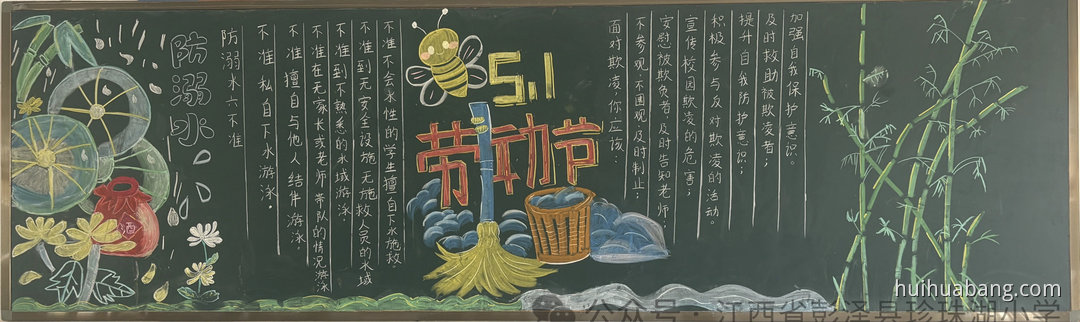 防溺水
防溺水六不准
不准私自下水游泳。
不准擅自与他人结伴游泳。
不准在无家长或老师带队的情况游泳
不准到不熟悉的水域游泳
不准到无安全设施无施救人员的水域
不准不会水性的学生擅自下水施救。
5.1
劳动节
面对欺凌，你应该：
不参观，不围观及时制止；
安慰被欺负者及时告知老师
宣传校园欺凌的危害；
积极参与反对欺凌的活动。
提升自我防护意识；
及时救助被欺凌者；
加强自我保护意识。
酒
huihuabang.com
公众号·江西省彭泽县珍珠湖小学